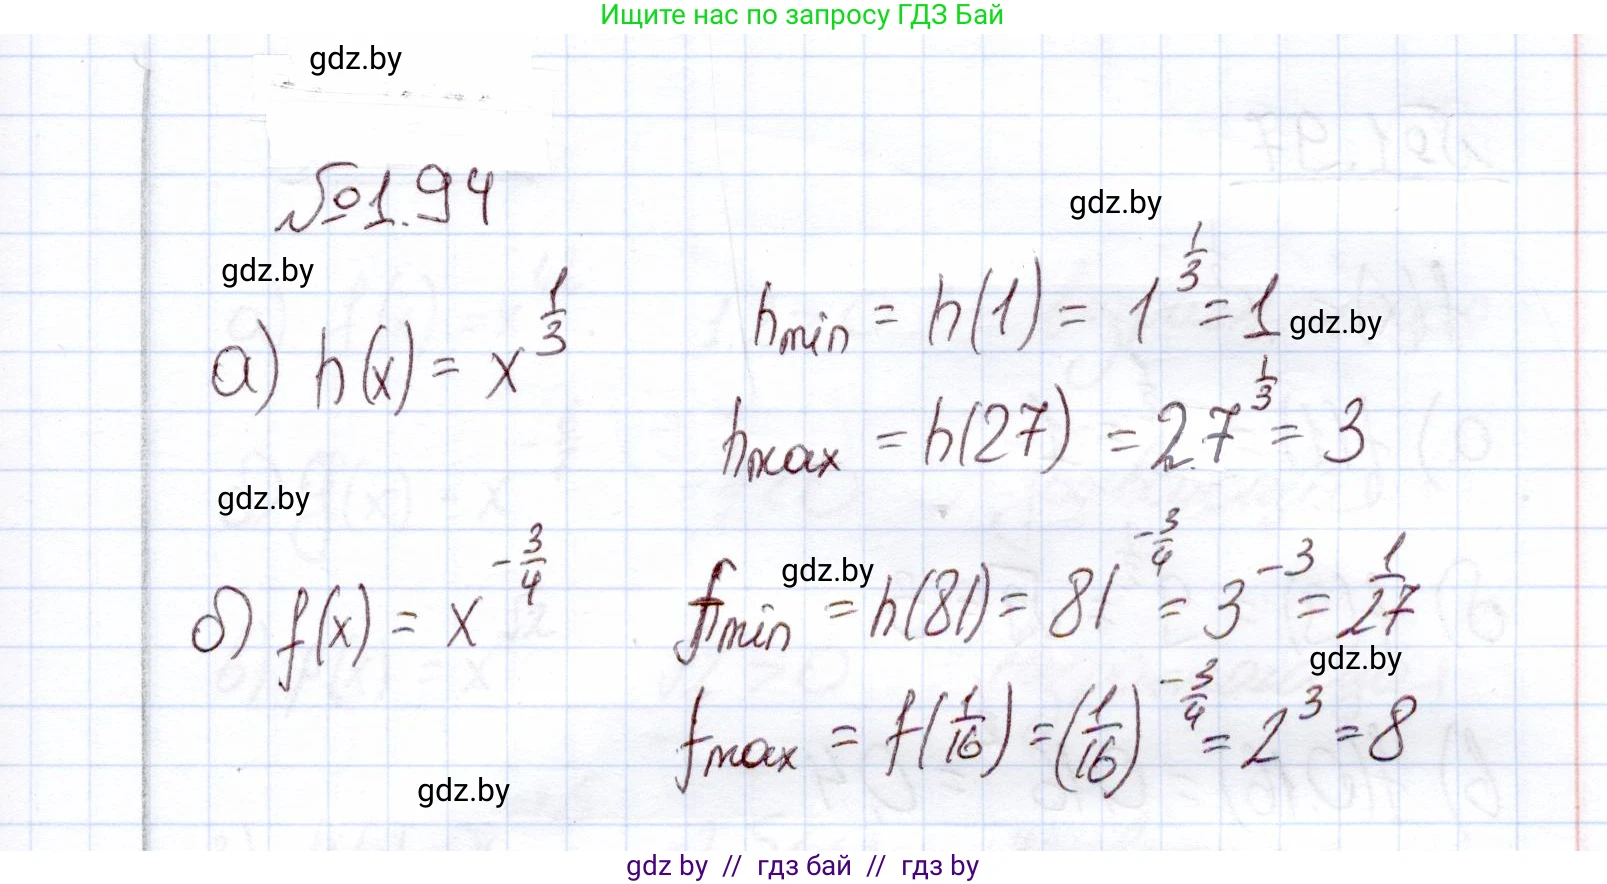 Ищите нас по запросу ГДЗ Бай
gdz.by
№1.94
gdz.by
gdz.by
а) h(x) = x^{1/3}
h_{min} = h(1) = 1^{1/3} = 1
gdz.by
h_{max} = h(27) = 27^{1/3} = 3
gdz.by
б) f(x) = x^{-3/4}
gdz.by
f_{min} = h(81) = 81^{-3/4} = 3^{-3} = 1/27
gdz.by
f_{max} = f(1/16) = (1/16)^{-3/4} = 2^3 = 8
gdz.by
gdz by // гдз бай // гдз by